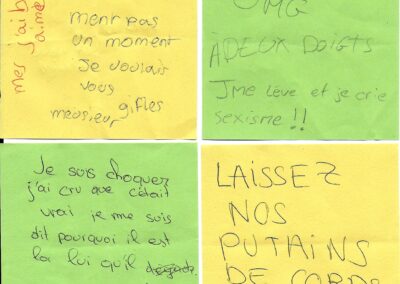 mes j'ai b
aimé
ment pas
un moment
Je voulais
vous
gifles
meusieur,
OMG
À DEUX DOIGTS
Jme lève et je crie
sexisme !!
Je suis choquer
j'ai cru que c'était
vrai je me suis
dit pourquoi il est
la lui qu'il
LAISSEZ
NOS
PUTAINS
DE CORPS